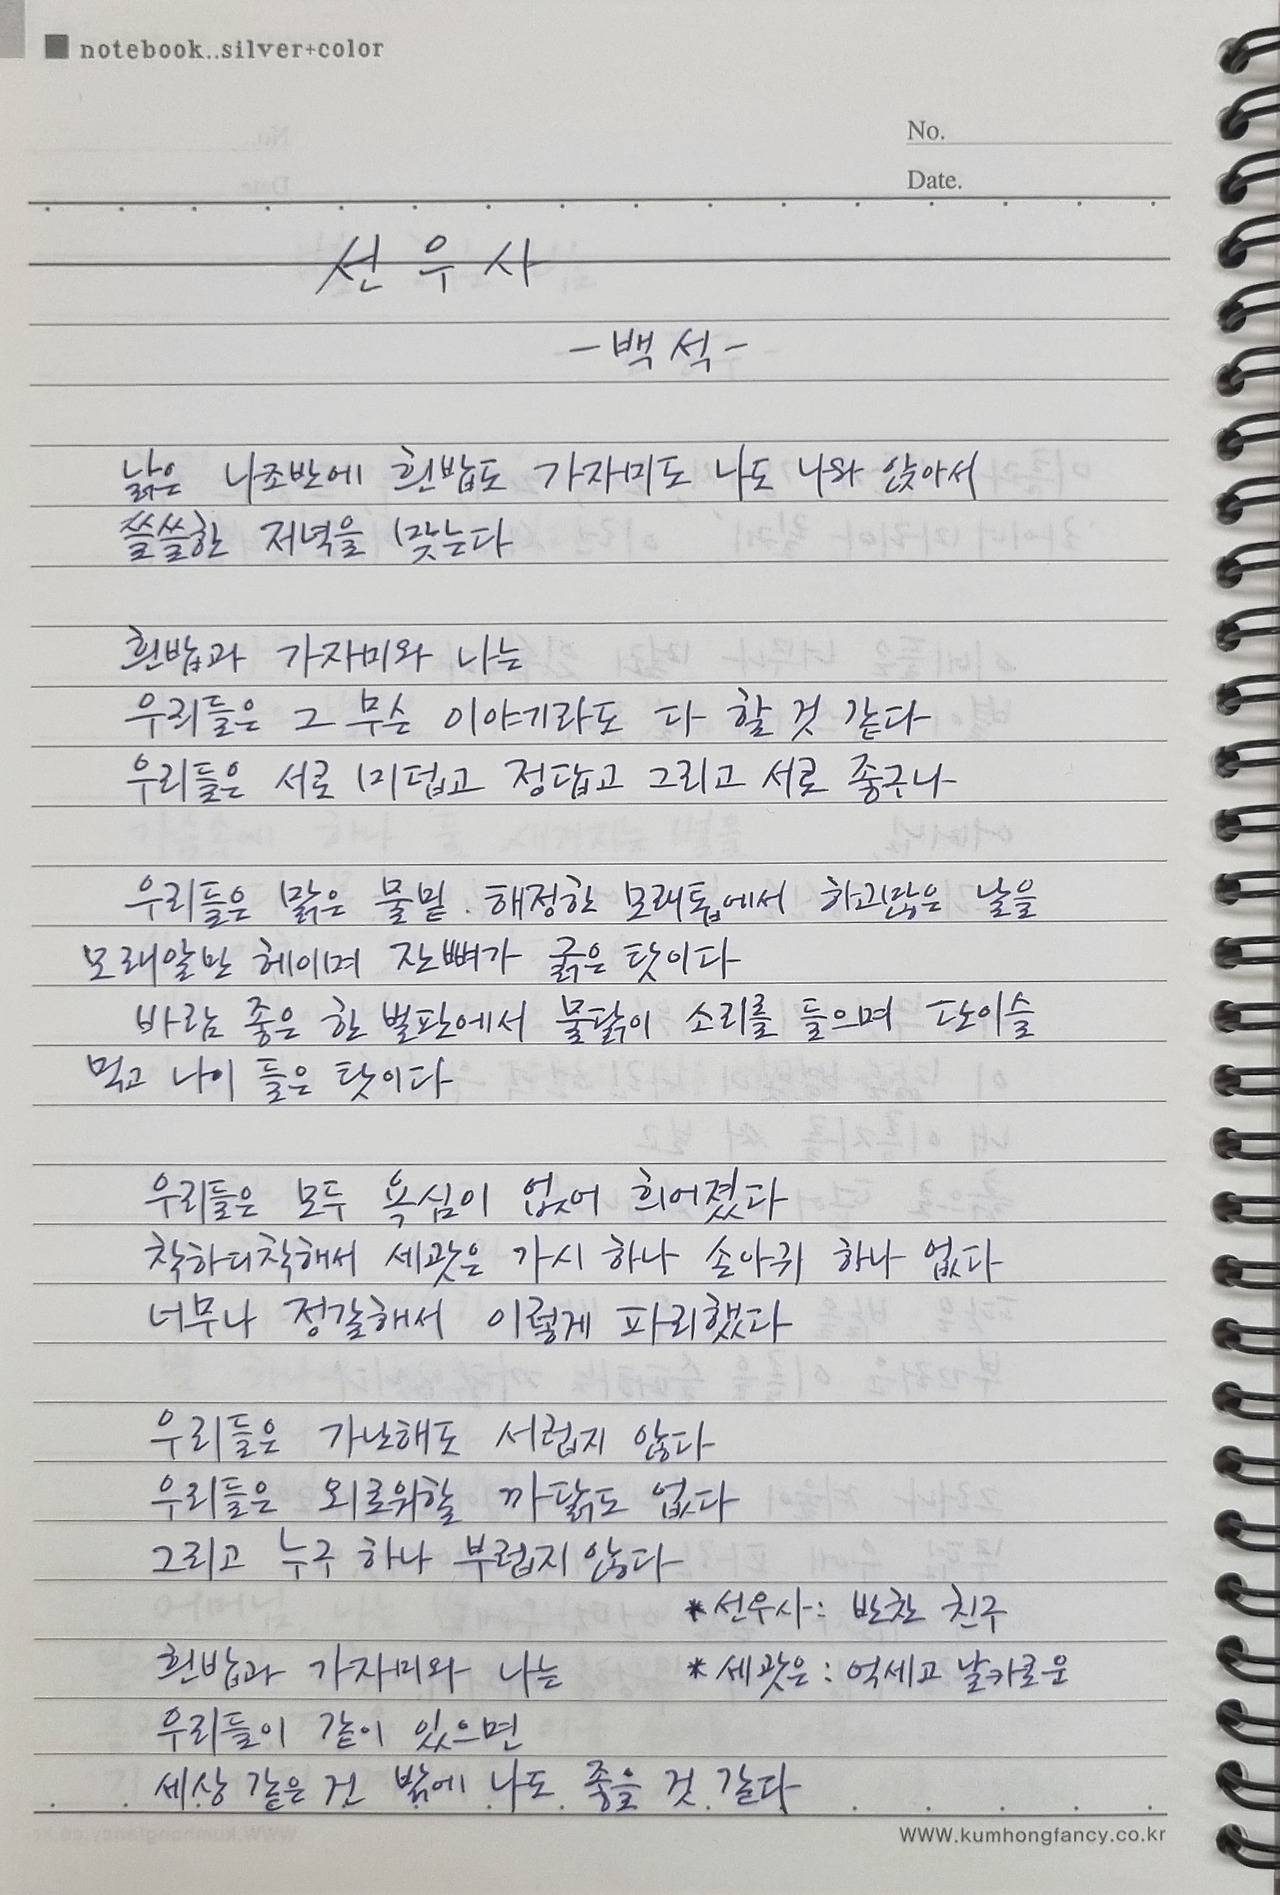 notebook..silver+color
No.
Date.
선우사
-백석-
낡은 나조반에 흰밥도 가자미도 나도 나와 앉아서
쓸쓸한 저녁을 맞는다
흰밥과 가자미와 나는
우리들은 그 무슨 이야기라도 다 할 것 같다
우리들은 서로 미덥고 정답고 그리고 서로 좋구나
우리들은 맑은 물밑 해정한 모래톱에서 하고많은 날을
모래알만 헤이며 잔뼈가 굵은 탓이다
바람 좋은 한 벌판에서 물닭이 소리를 들으며 단이슬
먹고 나이 들은 탓이다
우리들은 모두 욕심이 없어 희어졌다
착하디착해서 세괏은 가시 하나 손아귀 하나 없다
너무나 정갈해서 이렇게 파리했다
우리들은 가난해도 서럽지 않다
우리들은 외로워할 까닭도 없다
그리고 누구 하나 부럽지 않다
*선우사: 반찬 친구
흰밥과 가자미와 나는
*세괏은: 억세고 날카로운
우리들이 같이 있으면
세상 같은 건 밖에 나도 좋을 것 같다
WWW.kumhongfancy.co.kr